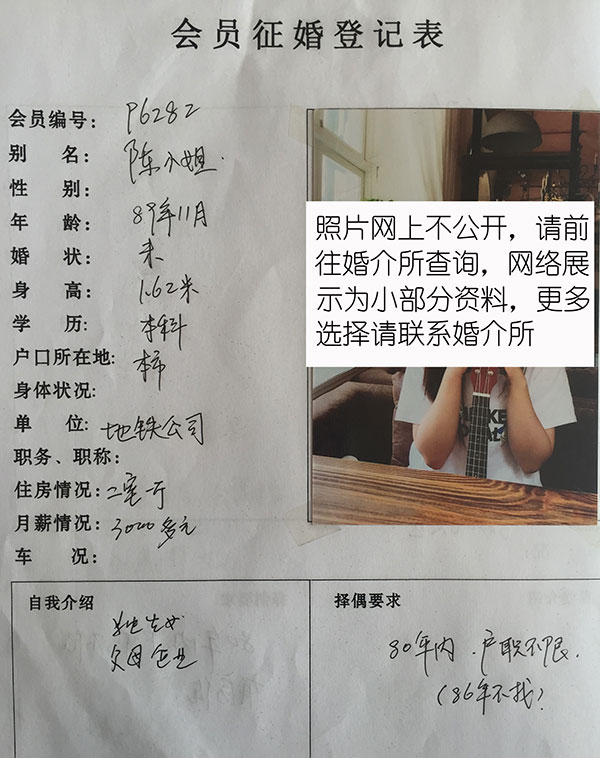 会员征婚登记表
会员编号: P6282
别 名: 陈小姐.
性 别:
年 龄: 89年11月
婚 状: 未
身 高: 1.62米
学 历: 本科
户口所在地: 本市
身体状况:
单 位: 地铁公司
职务、职称:
住房情况: 二室一厅
月薪情况: 3000多元
车 况:
照片网上不公开，请前
往婚介所查询，网络展
示为小部分资料，更多
选择请联系婚介所
自我介绍
独生女
父母企业
择偶要求
80年内.户职不限.
(86年不找)